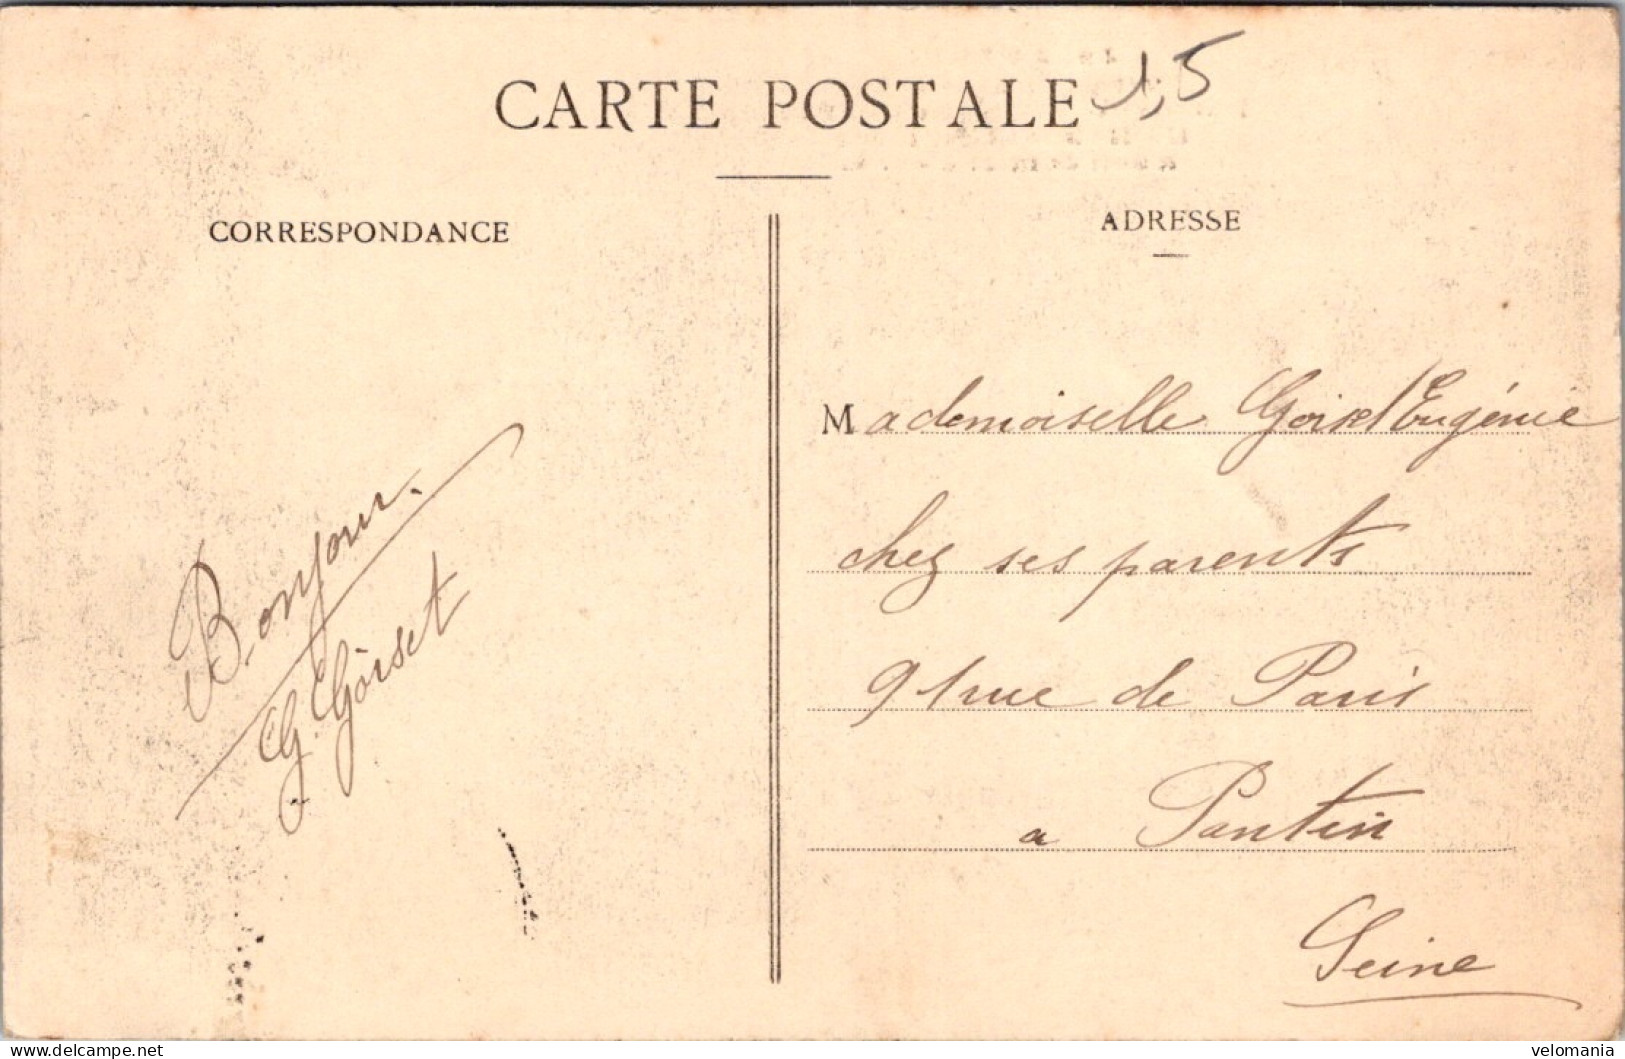 CARTE POSTALE
1,5
CORRESPONDANCE
Bonjour.
G. Goirset
ADRESSE
Mademoiselle Eugénie
chez ses parents
91 rue de Paris
a Pantin
Seine
delcampe.net
velomania